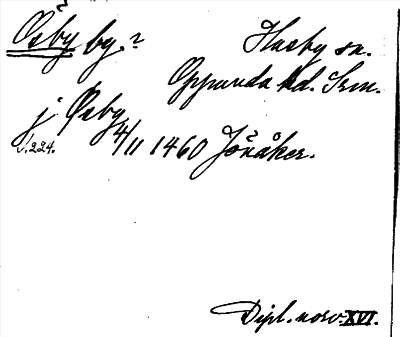 Ösby by. ? Husby sn.
Oppunda hd. Srm.
j Øsby
s. 224. 4/11 1460 Jönåker.
Dipl. norv. XVI.